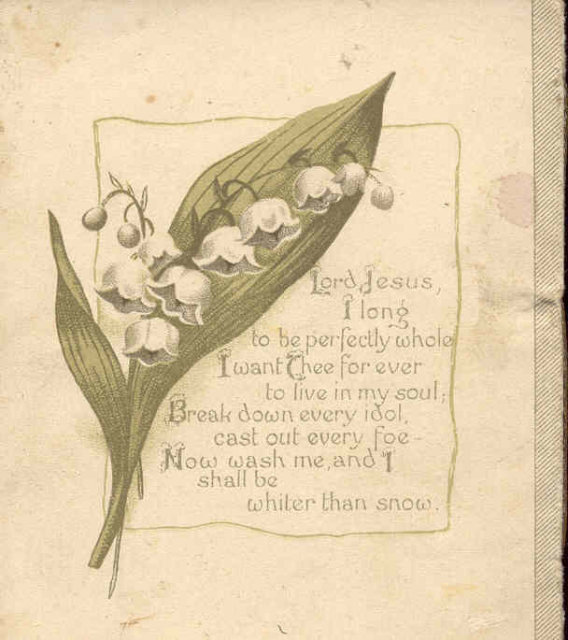 Lord Jesus,
I long
to be perfectly whole
I want Thee for ever
to live in my soul;
Break down every idol,
cast out every foe-
Now wash me, and I
shall be
whiter than snow.